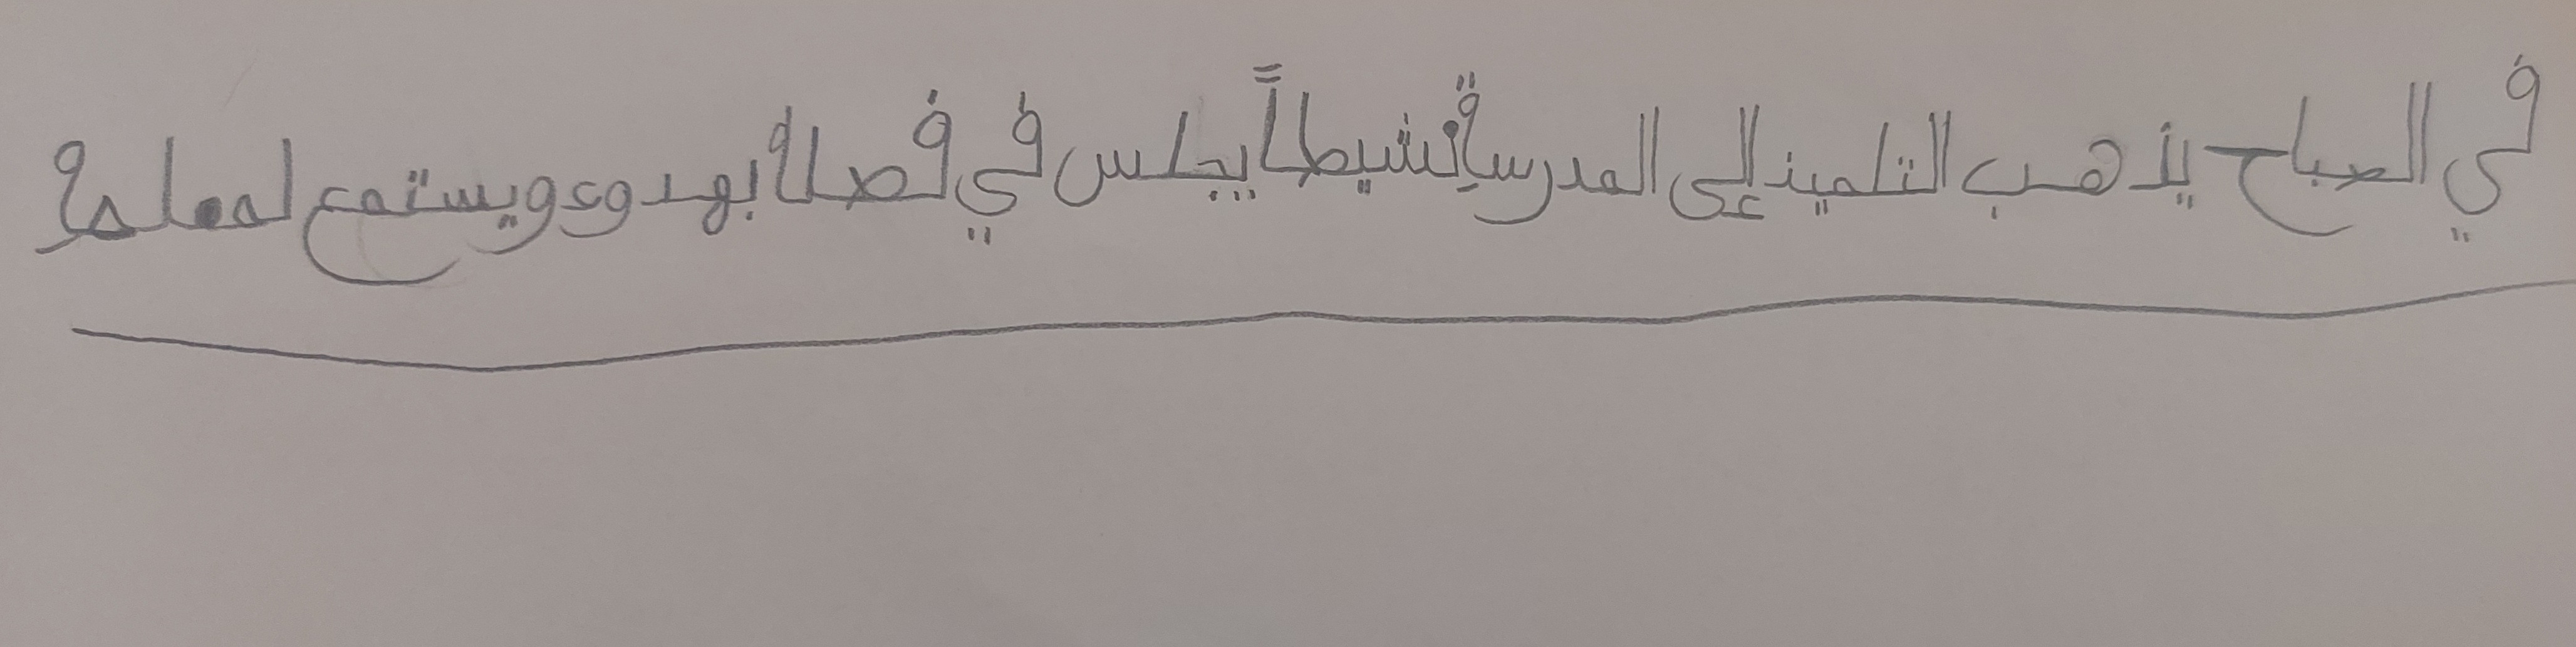 في الصباح يذهب التلميذ إلى المدرسة نشيطاً يجلس في فصله بهدوء ويستمع لمعلمه